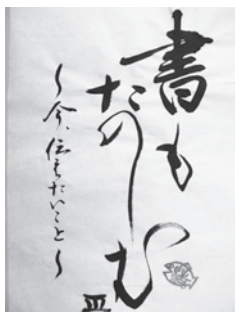 書も
たのしむ
～今、伝えたいこと～